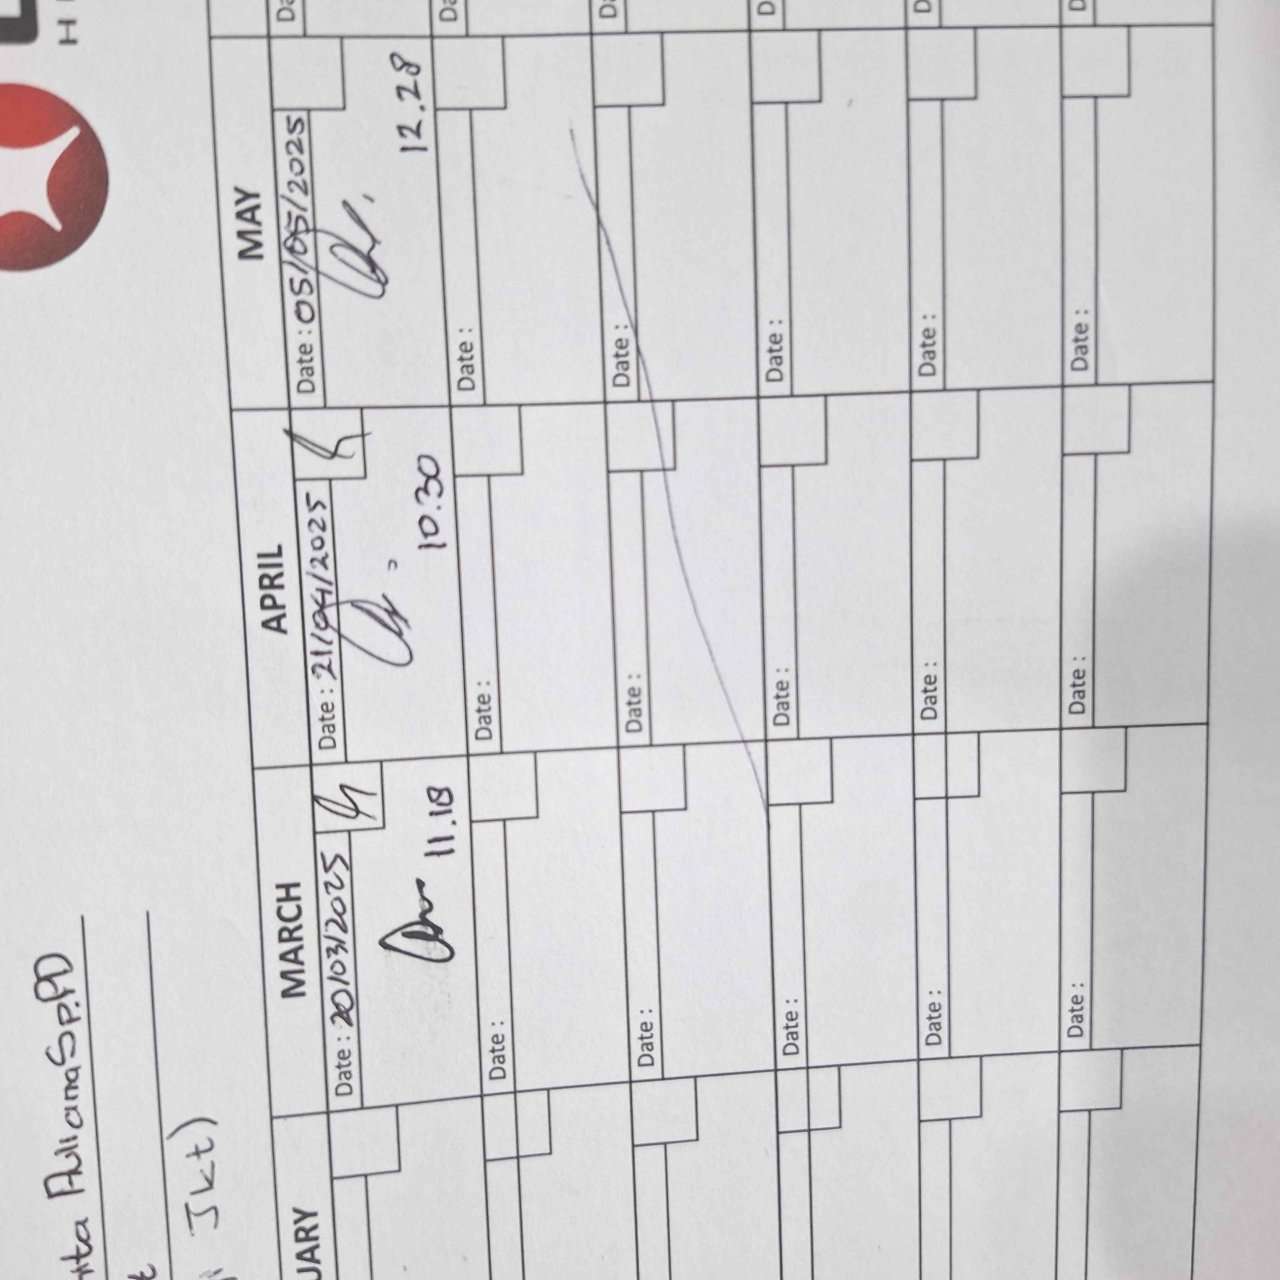 H
Aulianna Sp.PD
Jkt)
UARY
MARCH
APRIL
MAY
Date : 20/03/2025
Date : 21/04/2025
Date : 05/05/2025
Da
11.18
10.30
12.28
Date :
Date :
Date :
Da
Date :
Date :
Date :
Da
Date :
Date :
Date :
D
Date :
Date :
Date :
D
Date :
Date :
Date :
D